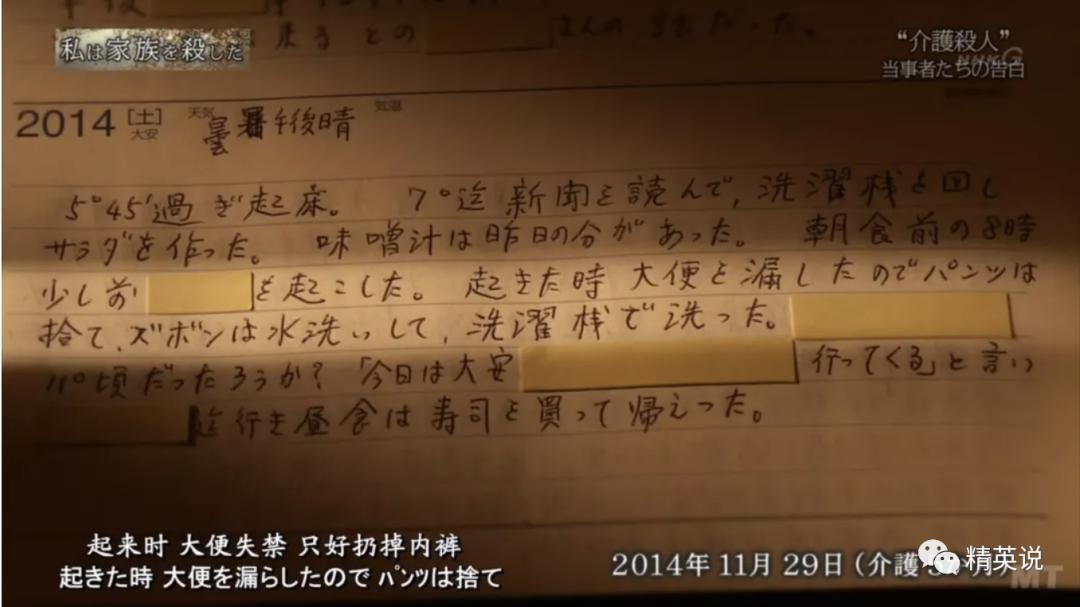 来るとの
私は家族を殺した
“介護殺人”
NHK G
当事者たちの告白
2014 [土] 大安 天気 曇 午後晴 気温
5°45'過ぎ起床。 7°迄新聞を読んで、洗濯桟を回し
サラダを作った。 味噌汁は昨日の分があった。 朝食前の8時
少し前 を起こした。 起きた時大便を漏したのでパンツは
捨て、ズボンは水洗いして、洗濯桟で洗った。
11°頃だったろうか?「今日は大安 行ってくる」と言い
迄行き昼食は寿司を買って帰えった。
起来时 大便失禁 只好扔掉内裤
起きた時 大便を漏らしたので パンツは捨て
2014年 11月 29日 (介護
精英说
MT